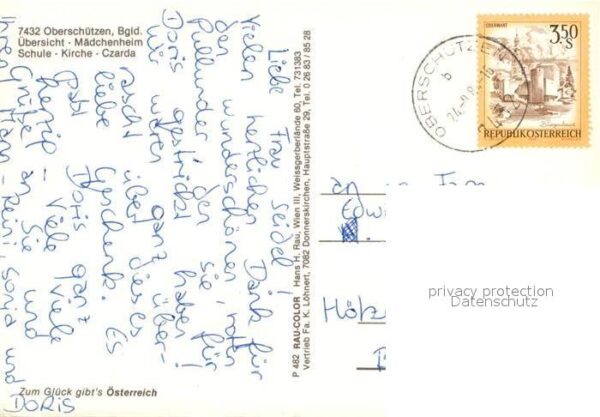 7432 Oberschützen, Bgld.
Übersicht - Mädchenheim
Schule - Kirche - Czarda
Liebe Frau Seidel!
Vielen herzlichen Dank für
den wunderschönen, roten
Pullunder, den Sie für
Doris gestrickt haben!
Wir waren ganz über-
rascht über dieses
liebe Geschenk. Es
paßt Doris ganz
prima - viele
Grüße an Sie und
Ihren Mann - Reini, Sonja und
DORIS
Zum Glück gibt's Österreich
P 482 RAU-COLOR Hans H. Rau, Wien III, Weissgerberlände 60, Tel. 731383
Vertrieb Fa. K. Löhnert, 7082 Donnerskirchen, Hauptstraße 29, Tel. 0 26 83 / 85 28
OBERSCHÜTZEN
b
OBERWART
3.50
S
REPUBLIK ÖSTERREICH
An Frau
Edwi
privacy protection
Datenschutz